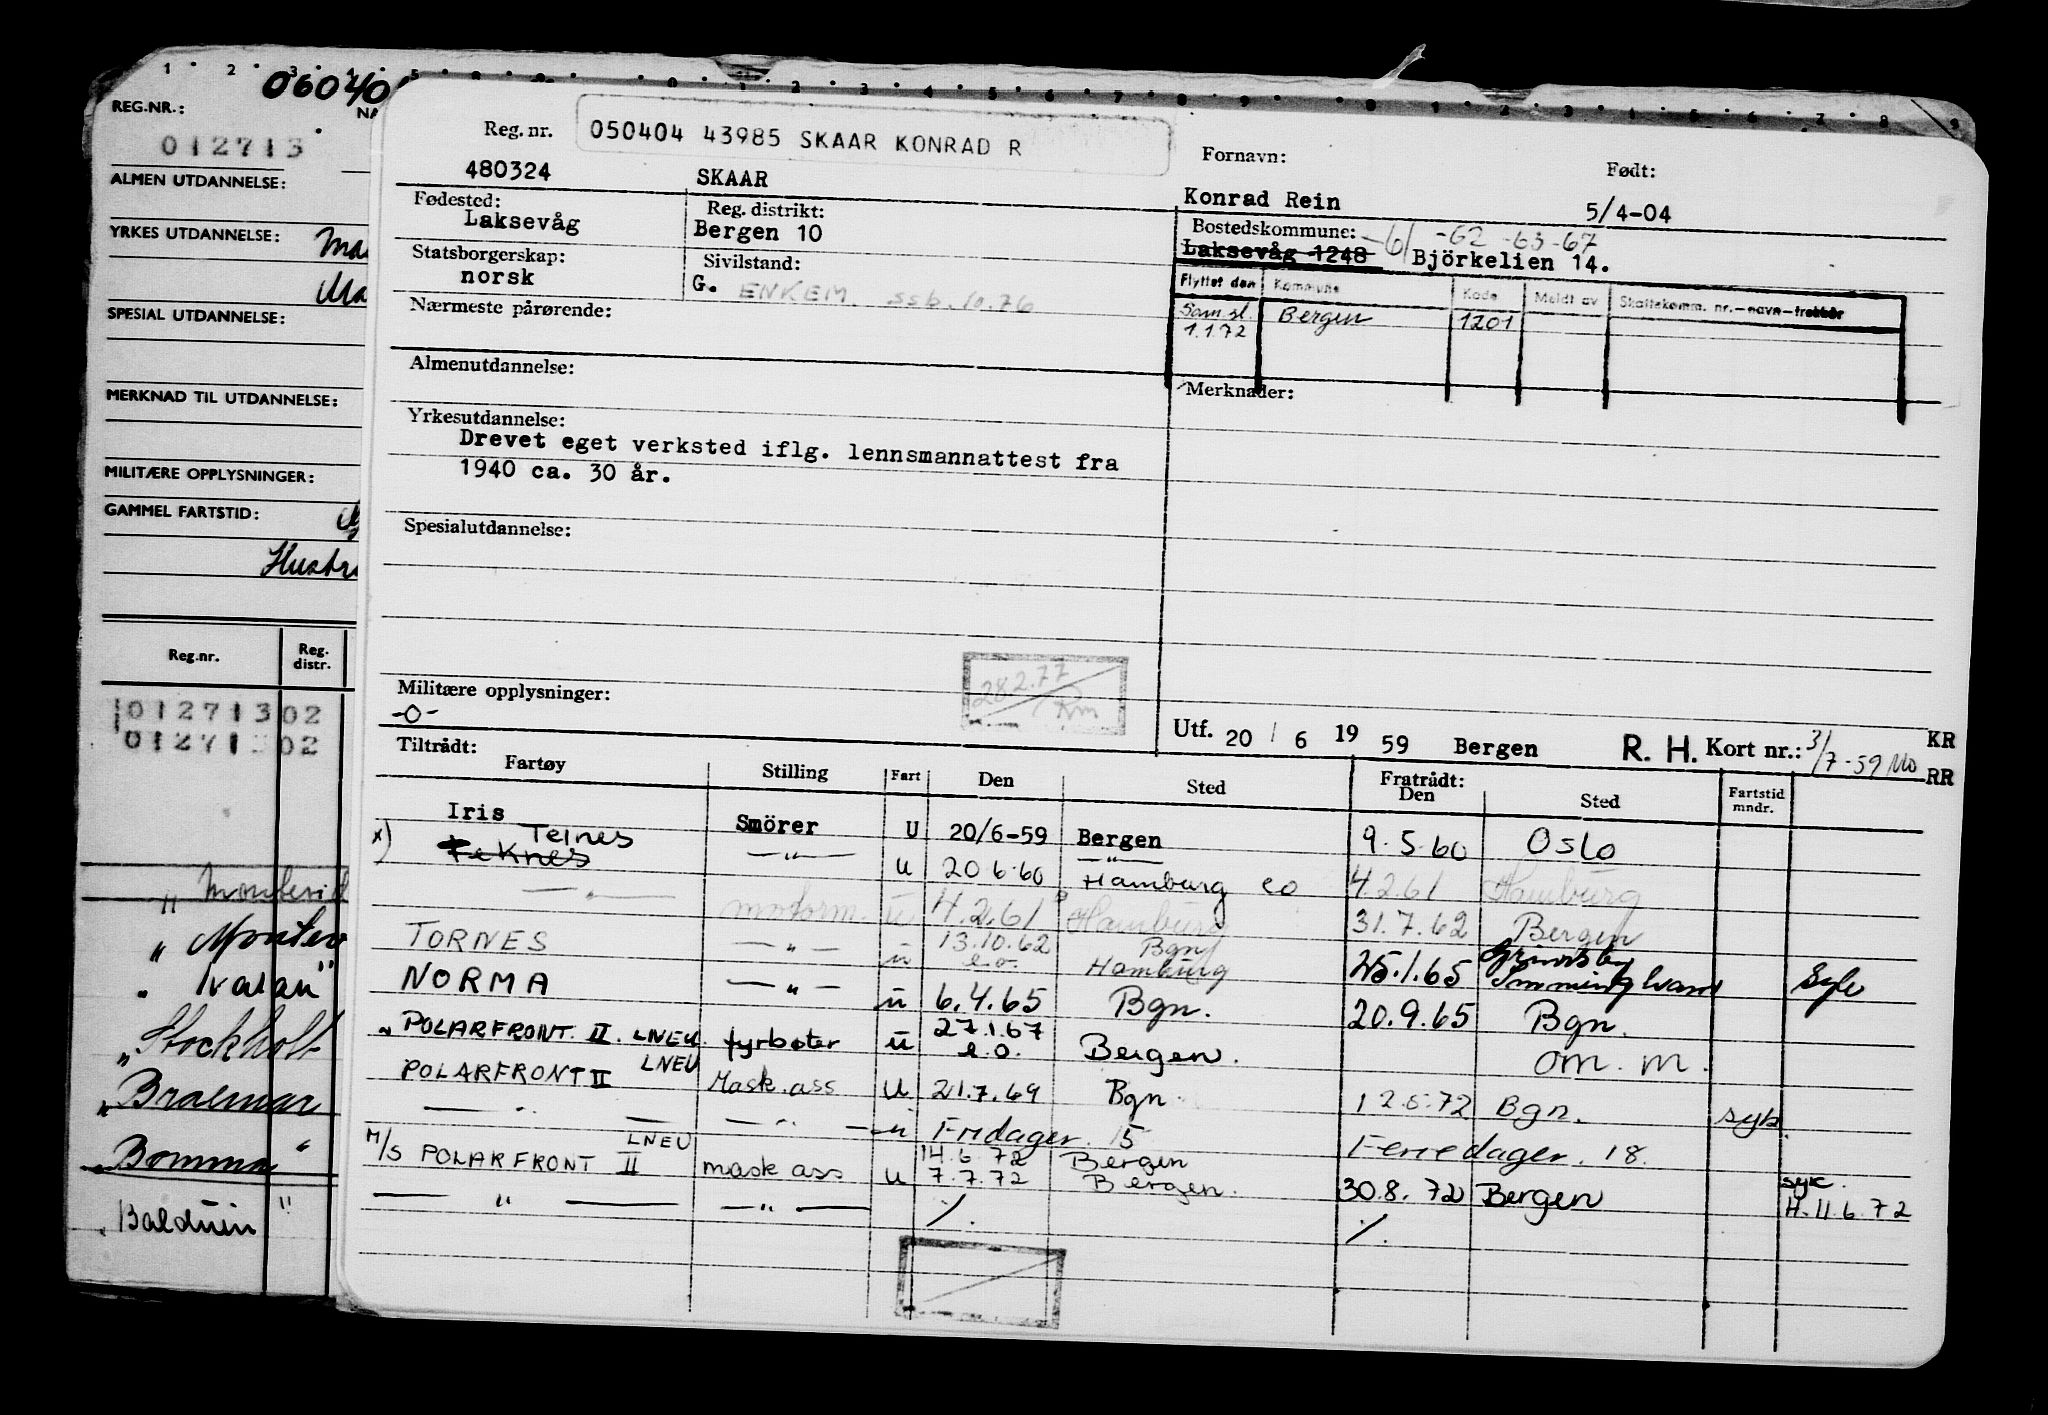 1 2 3 4 5
06040
REG.NR.:
NA
012713
ALMEN UTDANNELSE:
YRKES UTDANNELSE:
Ma
SPESIAL UTDANNELSE:
MERKNAD TIL UTDANNELSE:
MILITÆRE OPPLYSNINGER:
GAMMEL FARTSTID:
Hustr
Reg.nr. Reg. distr.
01271302
01271302
" Montevid
" Montev
" Ivaran "
" Stockholt
" Braemar
" Bomma "
" Balduin "
Reg. nr. 050404 43985 SKAAR KONRAD R
Fornavn: Født:
480324 SKAAR Konrad Rein 5/4-04
Fødested: Laksevåg
Reg. distrikt: Bergen 10
Bostedskommune: -61 -62 -63-67
Laksevåg 1248 Björkelien 14.
Statsborgerskap: norsk
Sivilstand: G. ENKEM. ssb.10.76
Flyttet den Kommune Kode Meldt av Skattekomm. nr.—navn—trekkår
Sam.sl. 1.1.72 Bergen 1201
Nærmeste pårørende:
Almenutdannelse:
Merknader:
Yrkesutdannelse:
Drevet eget verksted iflg. lennsmannattest fra
1940 ca. 30 år.
Spesialutdannelse:
Militære opplysninger:
-0-
28 2.77
Km
Utf. 20 / 6 19 59 Bergen R. H. Kort nr.: 3/7-59 Mo KR
RR
Tiltrådt:
Fartøy Stilling Fart Den Sted Fratrådt: Den Sted Fartstid mndr.
Iris Smörer U 20/6-59 Bergen 9.5.60 Oslo
x) Teknes Teines —"— u 20 6.60 —"— Hamburg eo 4.2.61 Hamburg
—"— motorm. u 4.2.61 Hamburg 31.7.62 Bergen
TORNES —"— u 13.10.62 e.o. Bgn Hamburg 25.1.65 Grimsby Immingham Syk
NORMA —"— u 6.4.65 Bgn. 20.9.65 Bgn.
" POLARFRONT II. LNEU. fyrbøter u 27.1.67 e.o. Bergen. om. m.
POLARFRONT II LNEU Mask. ass U 21.7.69 Bgn. 12.5.72 Bgn. syk.
—"— —"— u Fridager. 15 Feriedager. 18.
M/S POLARFRONT II LNEU mask ass u 14.6.72 Bergen
7.7.72 Bergen. 30.8.72 Bergen syk. H.11.6.72
—"— —"— ./. ./.